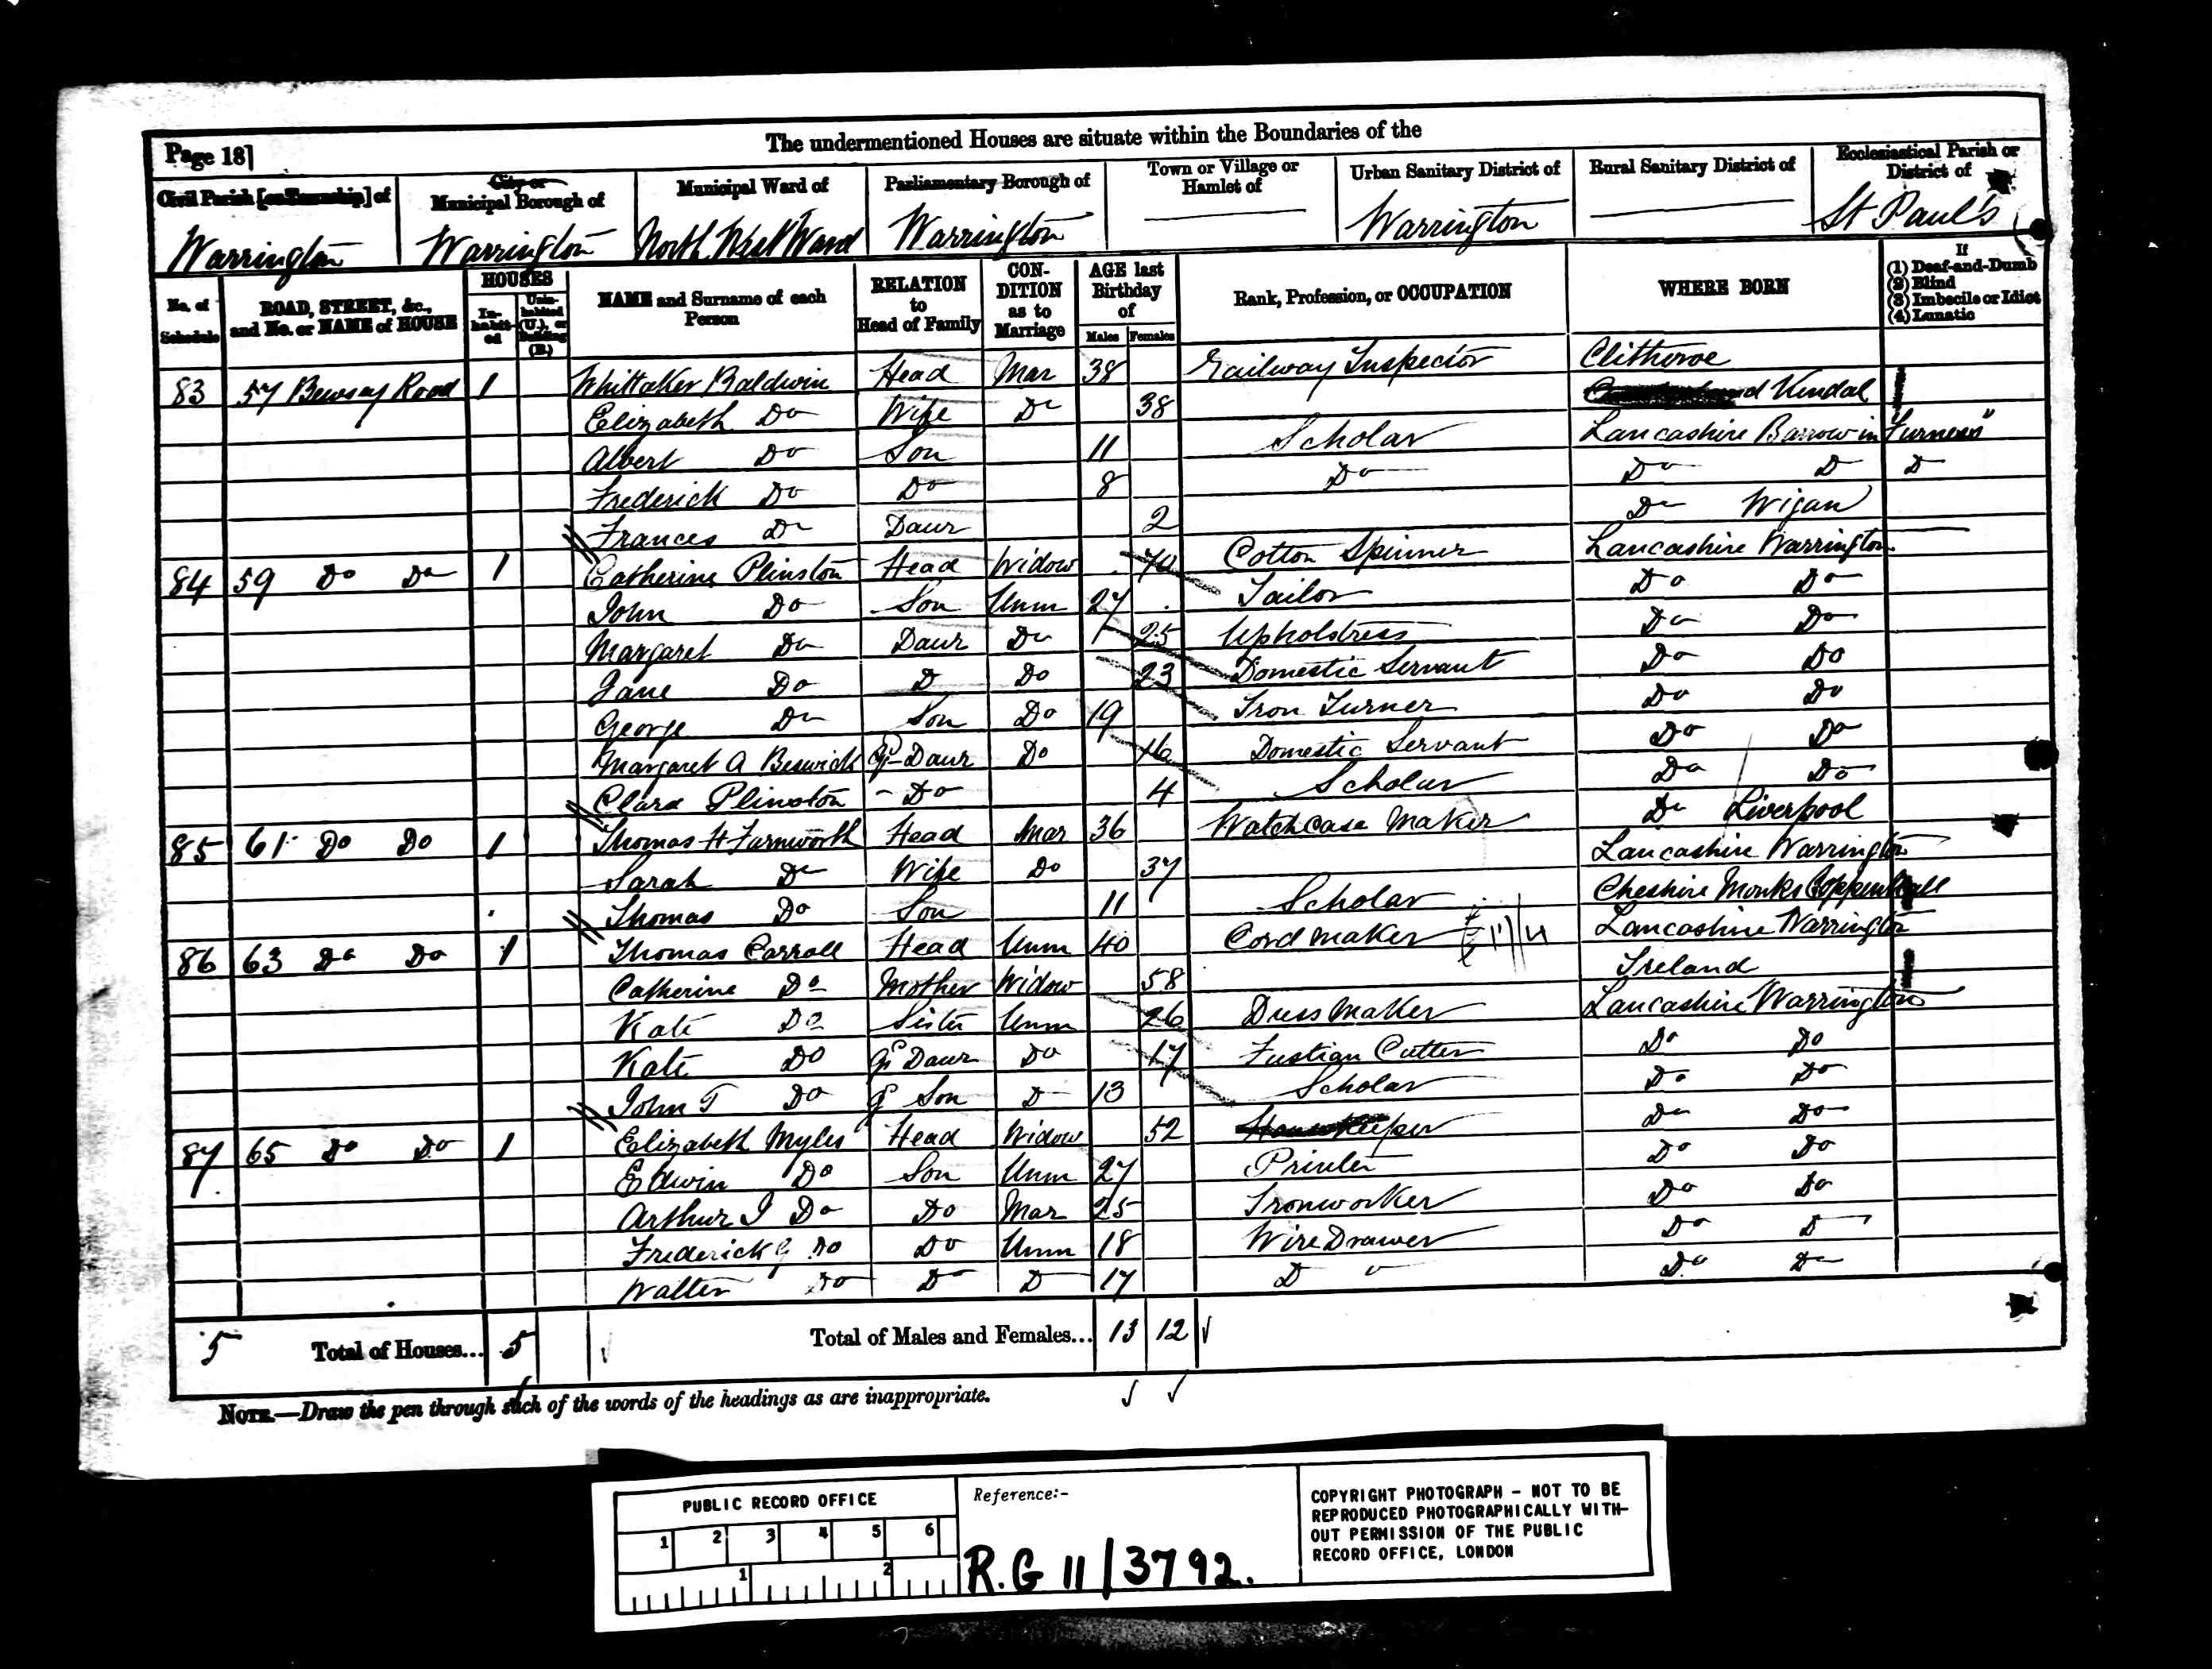 The undermentioned Houses are situate within the Boundaries of the
Page 18]
Civil Parish [or Township] of
City or Municipal Borough of
Municipal Ward of
Parliamentary Borough of
Town or Village or Hamlet of
Urban Sanitary District of
Rural Sanitary District of
Ecclesiastical Parish or District of
Warrington Warrington North West Ward Warrington Warrington St Paul's
No. of Schedule
ROAD, STREET, &c., and No. or NAME of HOUSE
HOUSES
In-habit-ed
Unin-habited (U.), or Building (B.)
NAME and Surname of each Person
RELATION to Head of Family
CON-DITION as to Marriage
AGE last Birthday of
Males Females
Rank, Profession, or OCCUPATION
WHERE BORN
If
(1) Deaf-and-Dumb
(2) Blind
(3) Imbecile or Idiot
(4) Lunatic
83 57 Bewsey Road 1 Whittaker Baldwin Head Mar 38 Railway Inspector Clitheroe
Elizabeth Do Wife Do 38 Kendal
Albert Do Son 11 Scholar Lancashire Barrow in Furness
Frederick Do Do 8 Do Do D D
Frances Do Daur 2 Do Wigan
84 59 Do Do 1 Catherine Plinston Head Widow Cotton Spinner Lancashire Warrington
John Do Son Unm 27 Tailor Do Do
Margaret Do Daur Do 25 Upholstress Do Do
Jane Do D Do 23 Domestic Servant Do Do
George Do Son Do 19 Iron Turner Do Do
Margaret A Beswick Gd-Daur Do 16 Domestic Servant Do Do
Clara Plinston - Do 4 Scholar Do Do
85 61 Do Do 1 Thomas H Farnworth Head Mar 36 Watchcase Maker Do Liverpool
Sarah Do Wife Do 37 Lancashire Warrington
Thomas Do Son 11 Scholar Cheshire Monks Coppenhall
86 63 Do Do 1 Thomas Carroll Head Unm 40 Cord Maker Lancashire Warrington
Catherine Do Mother Widow 58 Ireland
Kate Do Sister Unm 26 Dress Maker Lancashire Warrington
Kate Do Gd Daur Do 17 Fustian Cutter Do Do
John T Do G Son D 13 Scholar Do Do
87 65 Do Do 1 Elizabeth Myles Head Widow 52 Housekeeper Do Do
Edwin Do Son Unm 27 Printer Do Do
Arthur J Do Do Mar 25 Ironworker Do Do
Frederick G Do Do Unm 18 Wire Drawer Do D
Walter Do Do D 17 Do Do Do
5 Total of Houses... 5 Total of Males and Females... 13 12
NOTE.—Draw the pen through such of the words of the headings as are inappropriate.
PUBLIC RECORD OFFICE
1 2 3 4 5 6
1 2
Reference:-
R.G 11/3792.
COPYRIGHT PHOTOGRAPH - NOT TO BE
REPRODUCED PHOTOGRAPHICALLY WITH-
OUT PERMISSION OF THE PUBLIC
RECORD OFFICE, LONDON